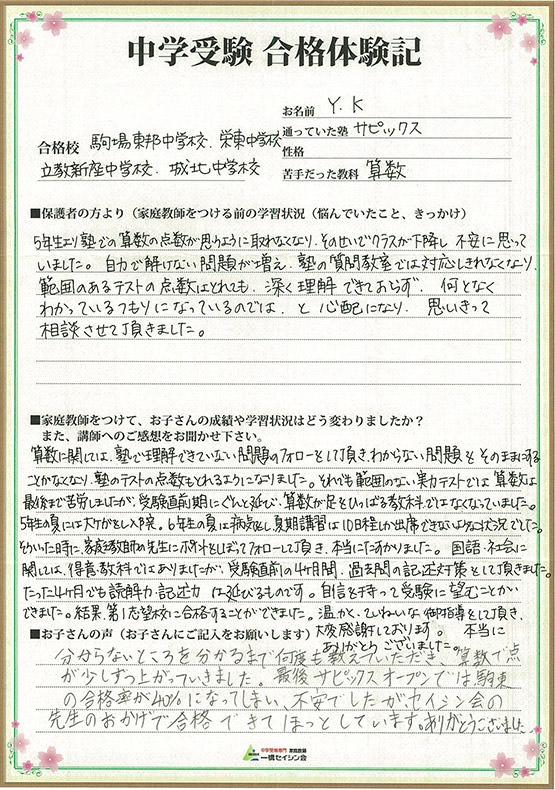 中学受験 合格体験記
お名前 Y.K
通っていた塾 サピックス
合格校 駒場東邦中学校、栄東中学校
性格
立教新座中学校、城北中学校
苦手だった教科 算数
■保護者の方より(家庭教師をつける前の学習状況(悩んでいたこと、きっかけ)
5年生より塾での算数の点数が思うように取れなくなり、そのせいでクラスが下降し不安に思って
いました。自力で解けない問題が増え、塾の質問教室では対応しきれなくなり、
範囲のあるテストの点数はとれても、深く理解できておらず、何となく
わかっているつもりになっているのでは、と心配になり、思いきって
相談させて頂きました。
■家庭教師をつけて、お子さんの成績や学習状況はどう変わりましたか?
また、講師へのご感想をお聞かせ下さい。
算数に関しては、塾で理解できていない問題のフォローをして頂き、わからない問題をそのままにする
ことがなくなり、塾のテストの点数もとれるようになりました。それでも範囲のない実力テストでは算数は
最後まで苦労しましたが、受験直前期にぐんと延び、算数が足をひっぱる教科ではなくなっていました。
5年生の夏には大ケガをし入院。6年生の夏は病気をし、夏期講習は10日程しか出席できないような状況でした。
そういった時に、家庭教師の先生にポイントをしぼってフォローして頂き、本当にたすかりました。国語・社会に
関しては、得意教科ではありましたが、受験直前の4ヶ月間、過去問の記述対策をして頂きました。
たった4ヶ月でも読解力・記述力は延びるものです。自信を持って受験に望むことが
できました。結果、第1志望校に合格することができました。温かく、ていねいな御指導をして頂き、
大変感謝しております。本当に
ありがとうございました。
■お子さんの声(お子さんにご記入をお願いします)
分からないところを分かるまで何度も教えていただき、算数で点
が少しずつ上がっていきました。最後サピックスオープンでは駒東
の合格率が40%になってしまい、不安でしたが、セイシン会の
先生のおかげで合格できてほっとしています。ありがとうございました
中学受験専門 家庭教師
一橋セイシン会